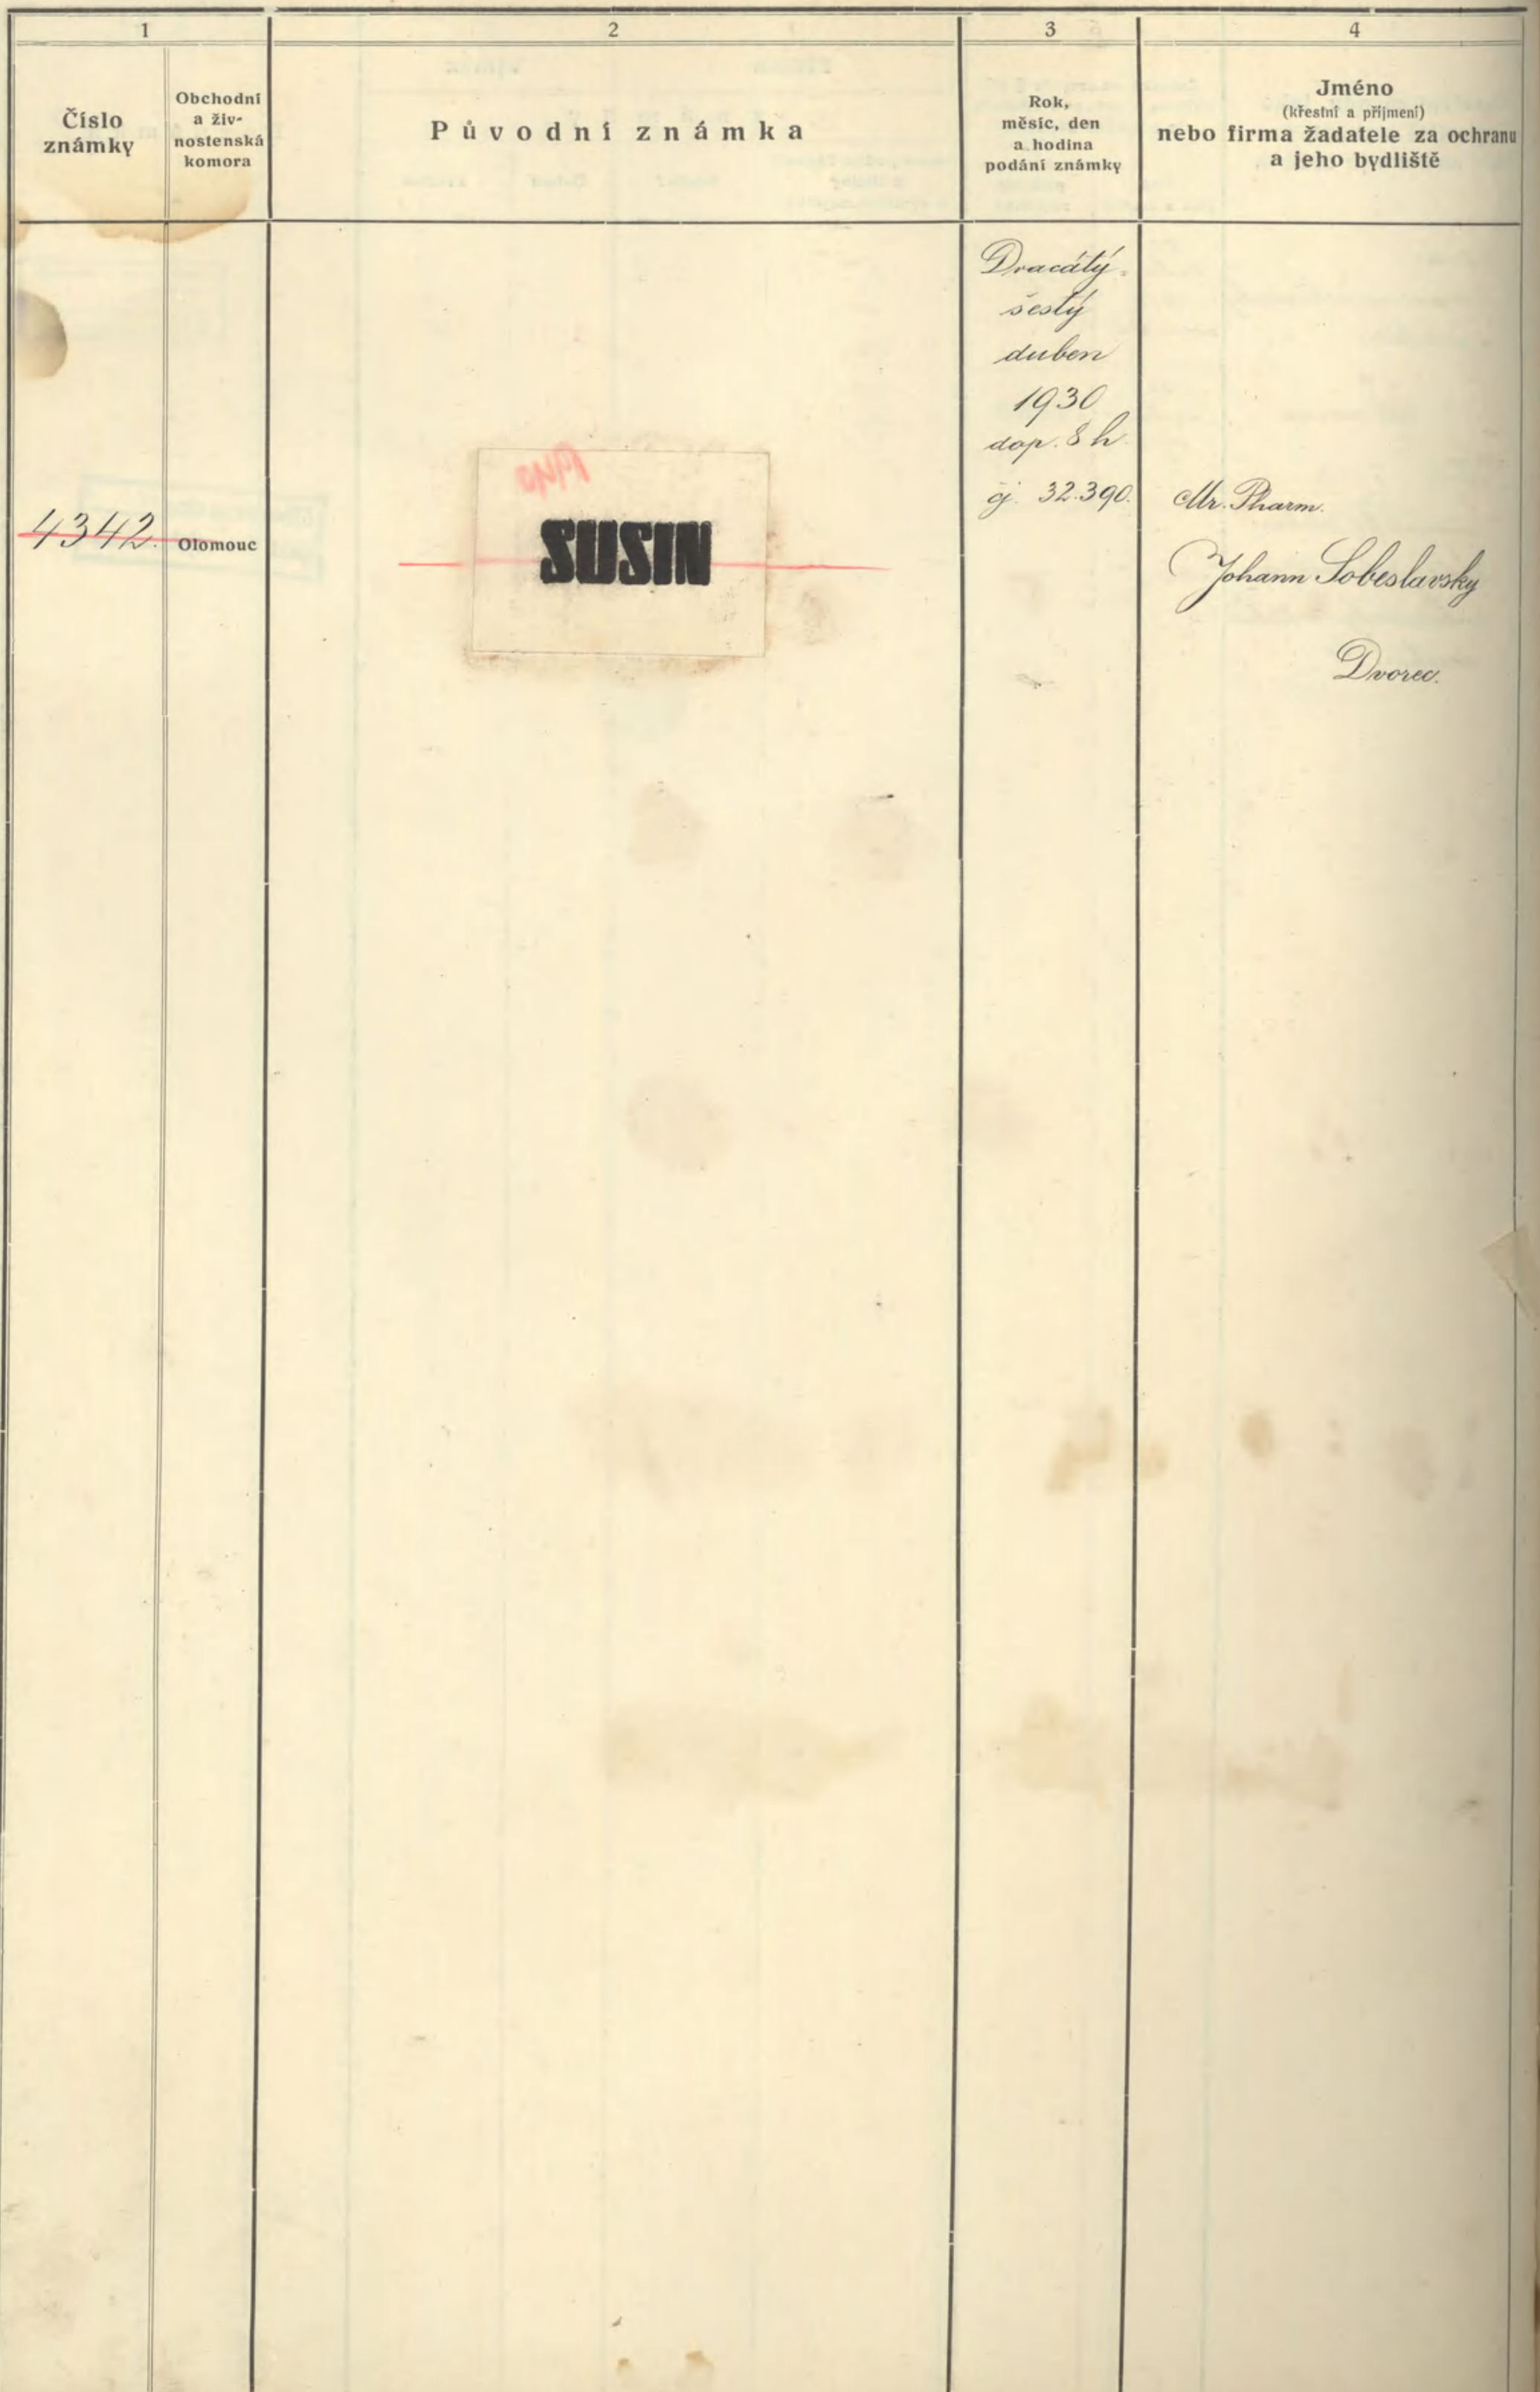 1
2
3
4
Číslo
známky
Obchodní
a živ-
nostenská
komora
Původní známka
Rok,
měsíc, den
a hodina
podání známky
Jméno
(křestní a příjmení)
nebo firma žadatele za ochranu
a jeho bydliště
4342.
Olomouc
SUSIN
Dvacátý
šestý
duben
1930
dop. 8 h.
čj. 32.390.
Mr. Pharm.
Johann Sobeslavsky
Dvorec.